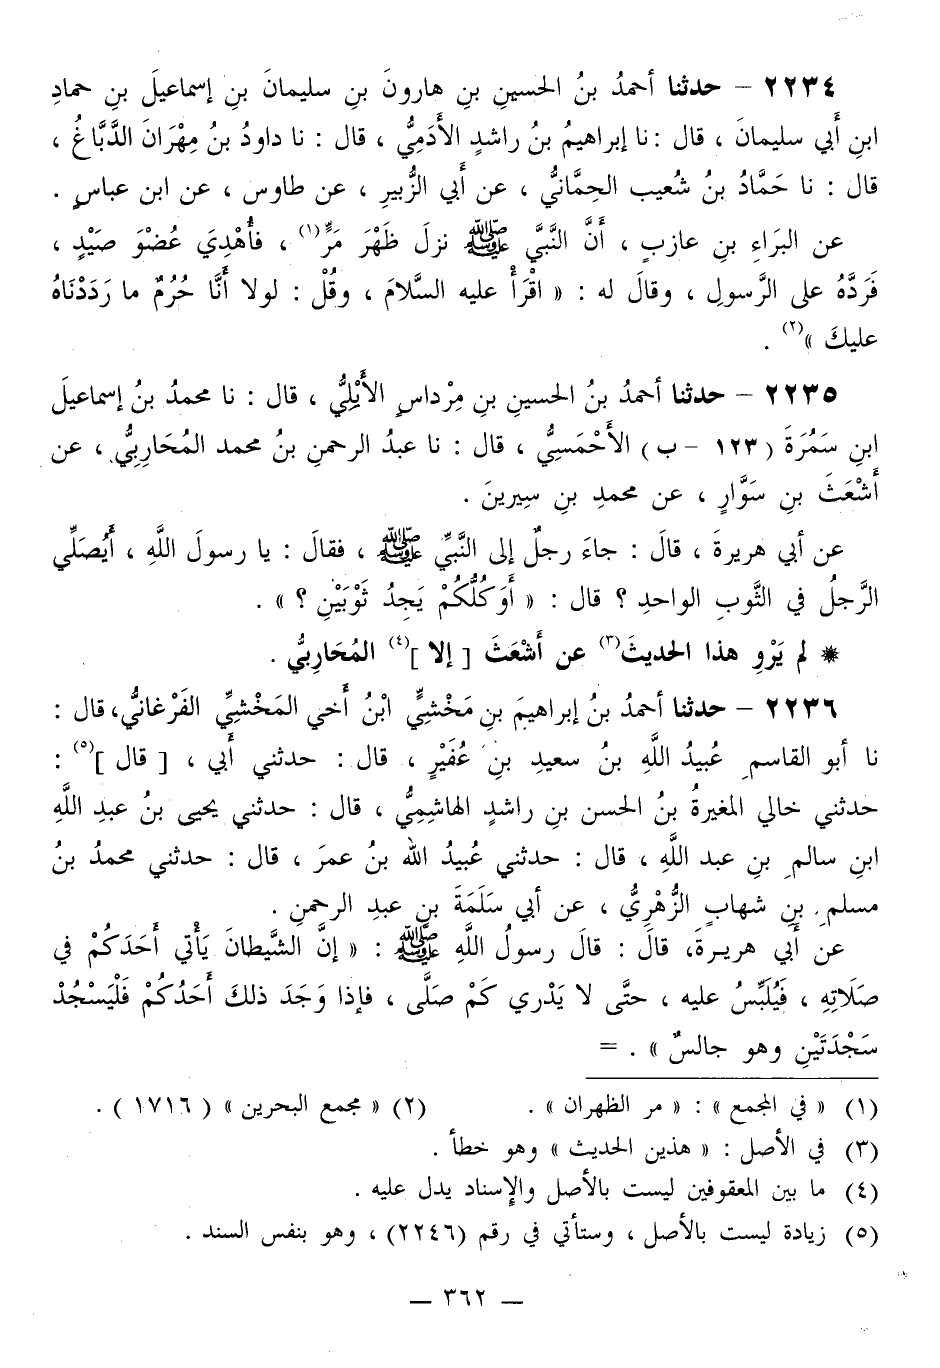 ٢٢٣٤ – حدثنا أحمدُ بنُ الحسينِ بنِ هارونَ بنِ سليمانَ بنِ إسماعيلَ بنِ حمادِ
ابنِ أَبي سليمانَ ، قال : نا إبراهيمُ بنُ راشدٍ الأَدَمِيُّ ، قال : نا داودُ بنُ مِهْرَانَ الدَّبَّاغُ ،
قال : نا حَمَّادُ بنُ شُعيب الحِمَّانيُّ ، عن أَبي الزُّبيرِ ، عن طاوس ، عن ابن عباسٍ .
عن البَرَاءِ بنِ عازبٍ ، أَنَّ النَّبيَّ ﷺ نزلَ ظَهْرَ مَرٍّ(١) ، فأُهْدِيَ عُضْوَ صَيْدٍ ،
فَرَدَّهُ على الرَّسولِ ، وقالَ له : « اقْرَأْ عليه السَّلامَ ، وقُلْ : لولا أَنَّا حُرُمٌ ما رَدَدْنَاهُ
عليكَ »(٢) .
٢٢٣٥ – حدثنا أحمدُ بنُ الحسينِ بنِ مِرْداسٍ الأَيْلِيُّ ، قال : نا محمدُ بنُ إسماعيلَ
ابنِ سَمُرَةَ ( ١٢٣ – ب ) الأَحْمَسِيُّ ، قال : نا عبدُ الرحمنِ بنُ محمد المُحَارِبِيُّ ، عن
أَشْعَثَ بنِ سَوَّارٍ ، عن محمدِ بنِ سِيرينَ .
عن أَبي هريرةَ ، قالَ : جاءَ رجلٌ إلى النَّبيِّ ﷺ ، فقالَ : يا رسولَ اللَّهِ ، أَيُصَلِّي
الرَّجلُ في الثَّوبِ الواحدِ ؟ قال : « أَوَكُلُّكُمْ يَجِدُ ثَوْبَيْنِ ؟ » .
* لم يَرْوِ هذا الحديثَ(٣) عن أَشْعَثَ [ إلا ](٤) المُحَارِبيُّ .
٢٢٣٦ – حدثنا أحمدُ بنُ إبراهيمَ بنِ مَخْشيٍّ ابْنُ أَخي المَخْشيِّ الفَرْغانيُّ، قال :
نا أبو القاسمِ عُبيدُ اللَّهِ بنُ سعيدِ بنِ عُفَيْرٍ ، قال : حدثني أَبي ، [ قال ](٥) :
حدثني خالي المغيرةُ بنُ الحسن بنِ راشدٍ الهاشِمِيُّ ، قال : حدثني يحيى بنُ عبدِ اللَّهِ
ابنِ سالمِ بنِ عبد اللَّهِ ، قال : حدثني عُبيدُ الله بنُ عمرَ ، قال : حدثني محمدُ بنُ
مسلمِ بنِ شهابٍ الزُّهْرِيُّ ، عن أبي سَلَمَةَ بنِ عبدِ الرحمنِ .
عن أَبي هريـرةَ، قالَ : قالَ رسولُ اللَّهِ ﷺ : « إنَّ الشَّيطانَ يَأْتي أَحَدَكُمْ في
صَلَاتِهِ ، فَيُلَبِّسُ عليه ، حتَّى لا يَدْري كَمْ صَلَّى ، فإذا وَجَدَ ذلكَ أَحَدُكُمْ فَلْيَسْجُدْ
سَجْدَتَيْنِ وهو جالسٌ » . =
(١) « في المجمع » : « مر الظهران » . (٢) « مجمع البحرين » ( ١٧١٦ ) .
(٣) في الأصل : « هذين الحديث » وهو خطأ .
(٤) ما بين المعقوفين ليست بالأصل والإسناد يدل عليه .
(٥) زيادة ليست بالأصل ، وستأتي في رقم (٢٢٤٦) ، وهو بنفس السند .
— ٣٦٢ —